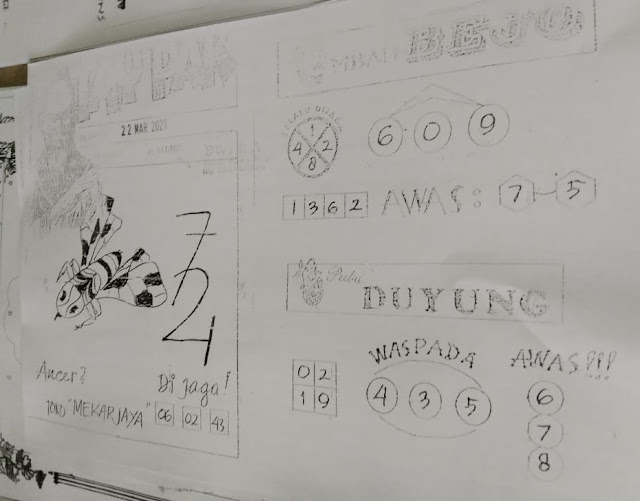 22 MAR 2021
7
2
4
Ancer?
Di jaga!
TOKO "MEKARJAYA" 06 02 43
MBAH BEJO
1
4 2
8
6 0 9
1 3 6 2 AWAS: 7 - 5
Putri
DUYUNG
0 2
1 9
WASPADA
4 3 5
AWAS!!!
6
7
8